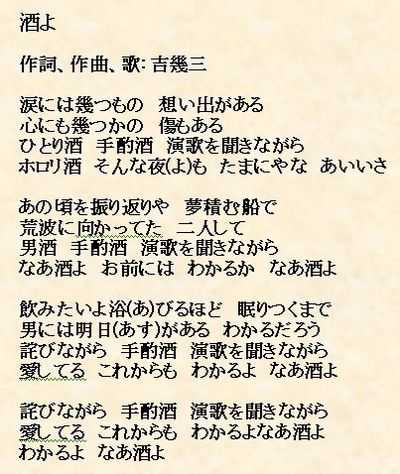 酒よ
作詞、作曲、歌: 吉幾三
涙には幾つもの　想い出がある
心にも幾つかの　傷もある
ひとり酒　手酌酒　演歌を聞きながら
ホロリ酒　そんな夜(よ)も　たまにやな　あいいさ
あの頃を振り返りや　夢積む船で
荒波に向かってた　二人して
男酒　手酌酒　演歌を聞きながら
なあ酒よ　お前には　わかるか　なあ酒よ
飲みたいよ浴(あ)びるほど　眠りつくまで
男には明日(あす)がある　わかるだろう
詫びながら　手酌酒　演歌を聞きながら
愛してる　これからも　わかるよ　なあ酒よ
詫びながら　手酌酒　演歌を聞きながら
愛してる　これからも　わかるよなあ酒よ
わかるよ　なあ酒よ